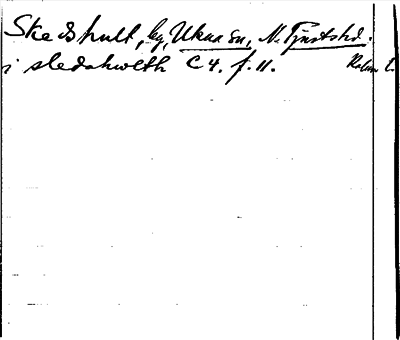 Skedshult, by, Ukna sn, N. Tjusts hd.
i skedahwlth C 4. f. 11. Kalm. l.